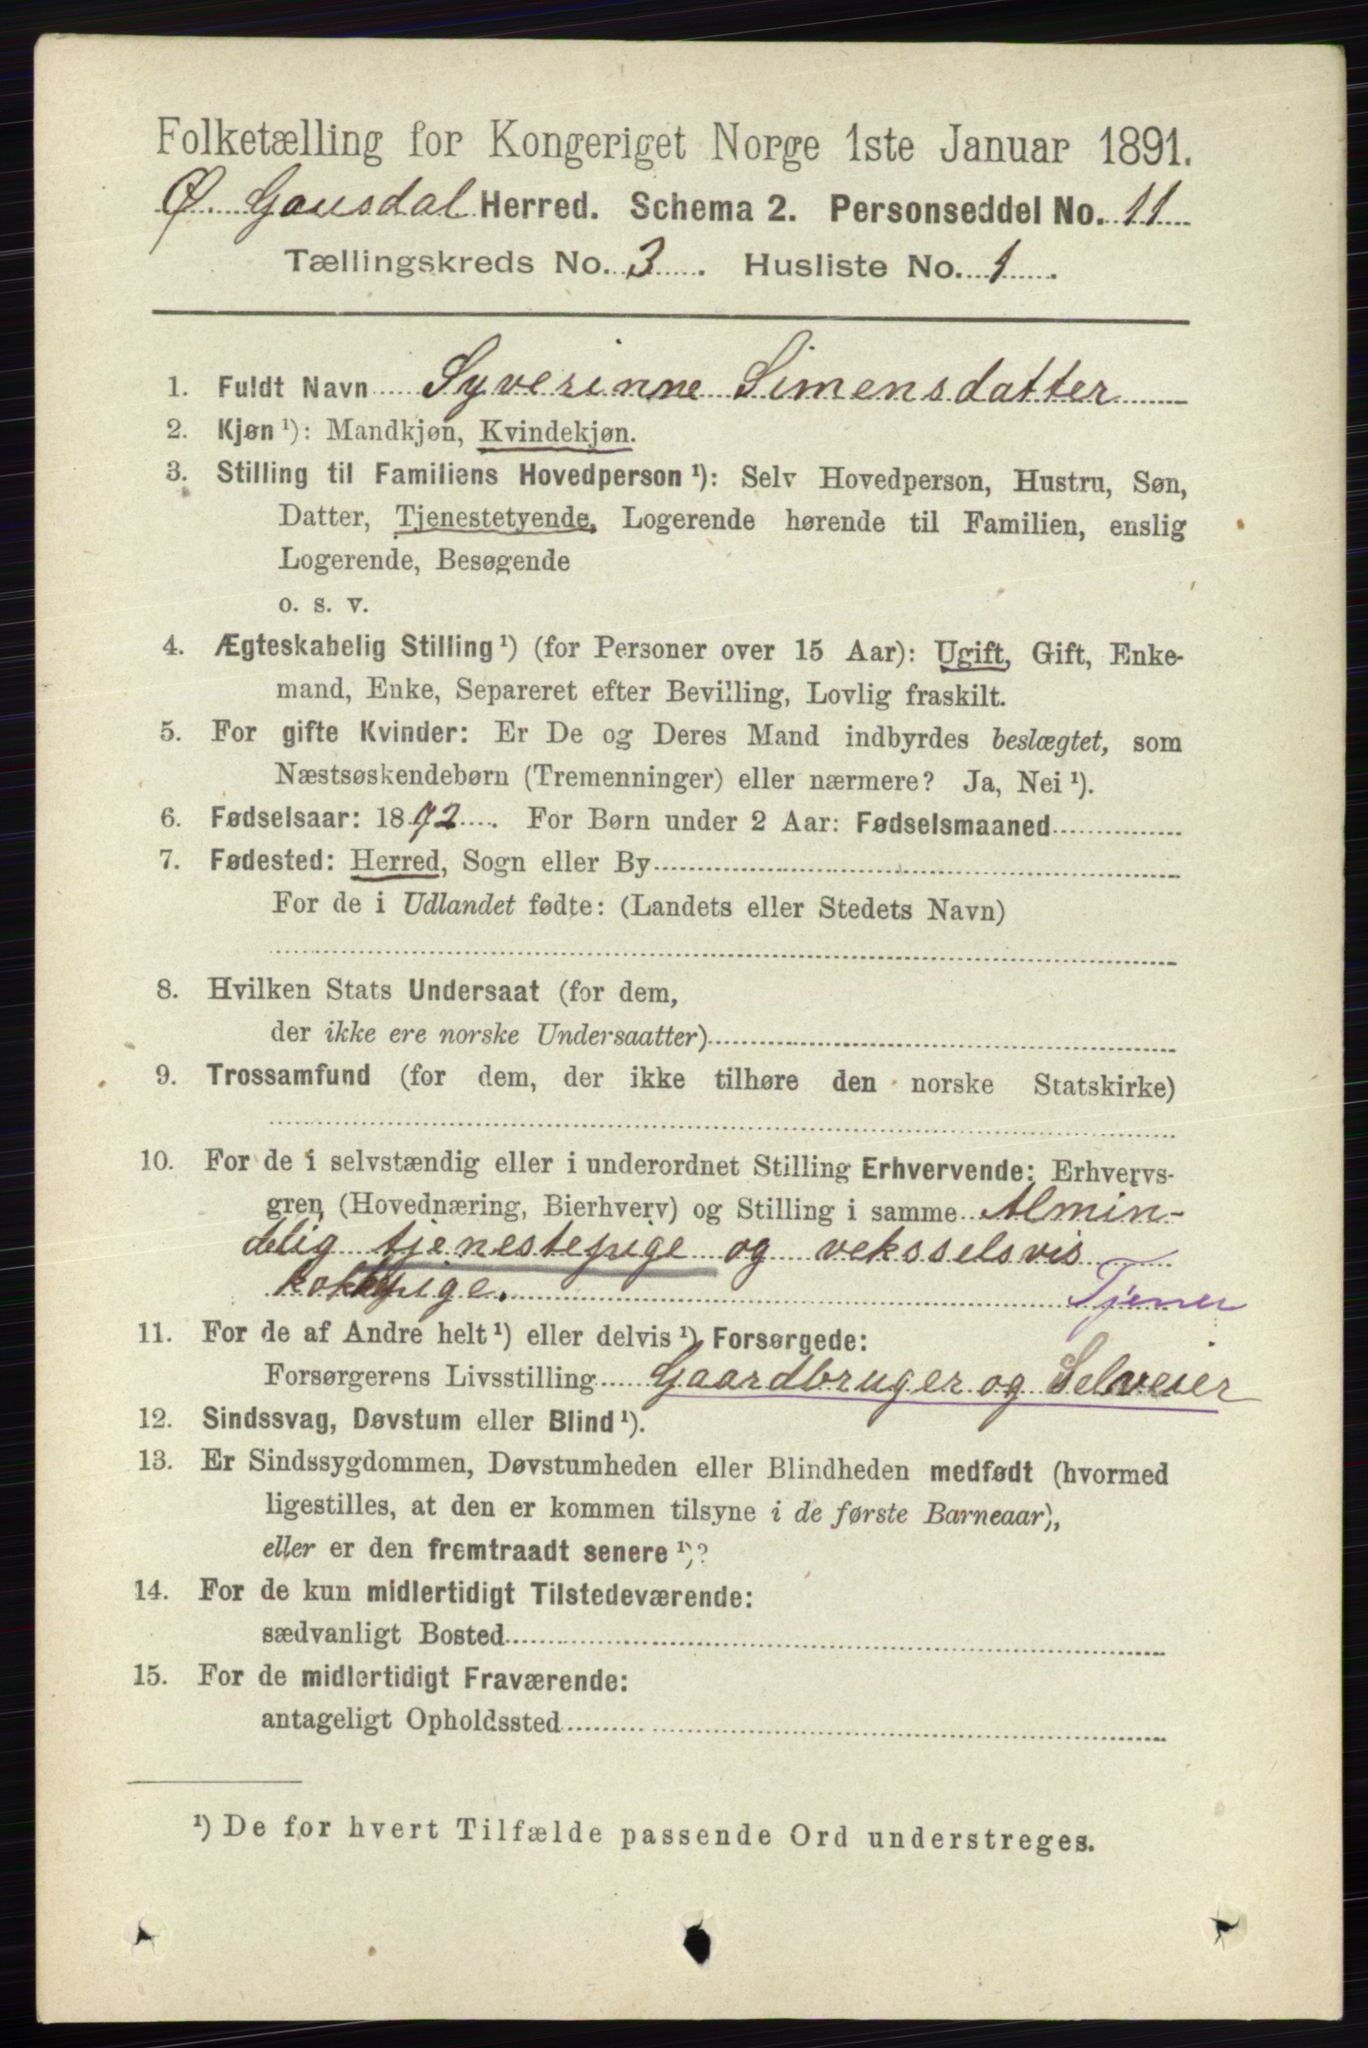 Folketælling for Kongeriget Norge 1ste Januar 1891.
Ø. Gausdal Herred. Schema 2. Personseddel No. 11
Tællingskreds No. 3. Husliste No. 1.
1. Fuldt Navn Syverinne Simensdatter
2. Kjøn ¹): Mandkjøn, Kvindekjøn.
3. Stilling til Familiens Hovedperson ¹): Selv Hovedperson, Hustru, Søn,
Datter, Tjenestetyende, Logerende hørende til Familien, enslig
Logerende, Besøgende
o. s. v.
4. Ægteskabelig Stilling ¹) (for Personer over 15 Aar): Ugift, Gift, Enke-
mand, Enke, Separeret efter Bevilling, Lovlig fraskilt.
5. For gifte Kvinder: Er De og Deres Mand indbyrdes beslægtet, som
Næstsøskendebørn (Tremenninger) eller nærmere? Ja, Nei ¹).
6. Fødselsaar: 1872. For Børn under 2 Aar: Fødselsmaaned
7. Fødested: Herred, Sogn eller By
For de i Udlandet fødte: (Landets eller Stedets Navn)
8. Hvilken Stats Undersaat (for dem,
der ikke ere norske Undersaatter)
9. Trossamfund (for dem, der ikke tilhøre den norske Statskirke)
10. For de i selvstændig eller i underordnet Stilling Erhvervende: Erhvervs-
gren (Hovednæring, Bierhverv) og Stilling i samme Almin-
delig tjenestepige og veksselsvis
kokkpige. Tjener
11. For de af Andre helt ¹) eller delvis ¹) Forsørgede:
Forsørgerens Livsstilling Gaardbruger og Selveier
12. Sindssvag, Døvstum eller Blind ¹).
13. Er Sindssygdommen, Døvstumheden eller Blindheden medfødt (hvormed
ligestilles, at den er kommen tilsyne i de første Barneaar),
eller er den fremtraadt senere ¹)?
14. For de kun midlertidigt Tilstedeværende:
sædvanligt Bosted
15. For de midlertidigt Fraværende:
antageligt Opholdssted
¹) De for hvert Tilfælde passende Ord understreges.